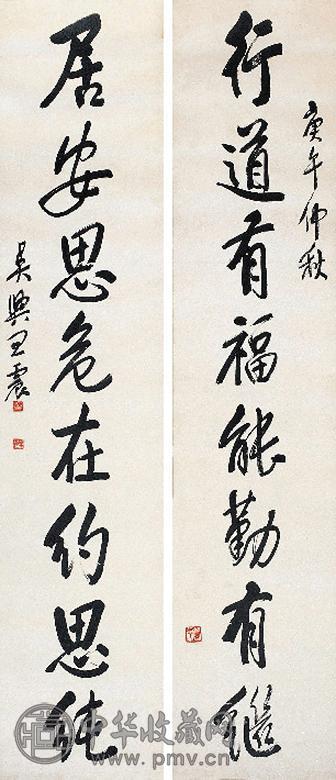 庚午仲秋
行道有福能勤有继
居安思危在约思纯
吴兴王震
中华收藏网
www.pmv.cn